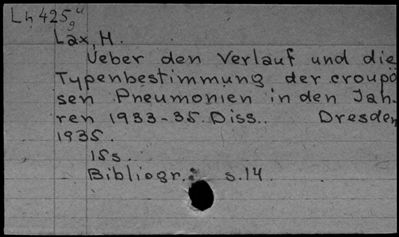 Lh 425 u
g
Lax, H.
Ueber den Verlauf und die
Typenbestimmung der croupö
sen Pneumonien in den Jah-
ren 1933-35. Diss.. Dresden
1935.
15s.
Bibliogr.: s.14.